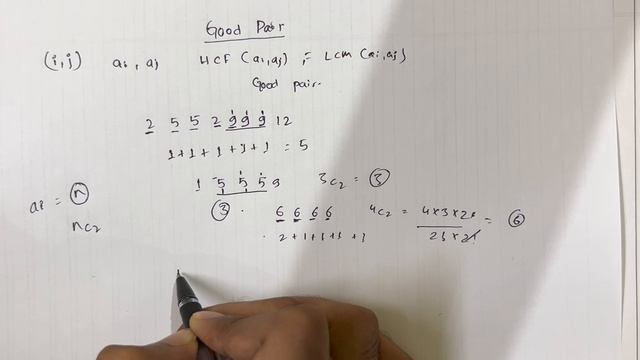 Good Pair
(i,j) ai, aj HCF (ai,aj) = LCM (ai,aj)
Good pair.
2 5 5 2 9 9 9 12
1+1+1+1+1 = 5
1 5 5 5 9 3c2 = 3
3.
6 6 6 6 4c2 = 4×3×2! = 6
2! × 2!
ai = n
nc2